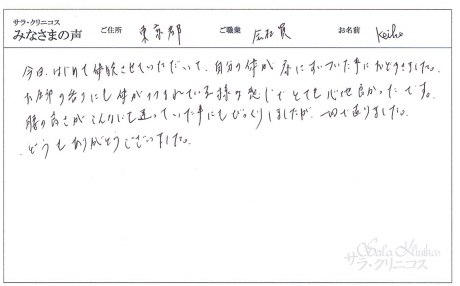 サラ・クリニコス
みなさまの声 ご住所 東京都 ご職業 会社員 お名前 Keiko
今日、はじめて体験させていただいて、自分の体が 床にすいついた事におどろきました。
の方にも体がされている様な感じでとても心地良かったです。
腰の高さがこんなにも違っていた事にもびっくりしましたが、一回で直りました。
どうもありがとうございました。
Sala Klinikos
サラ・クリニコス